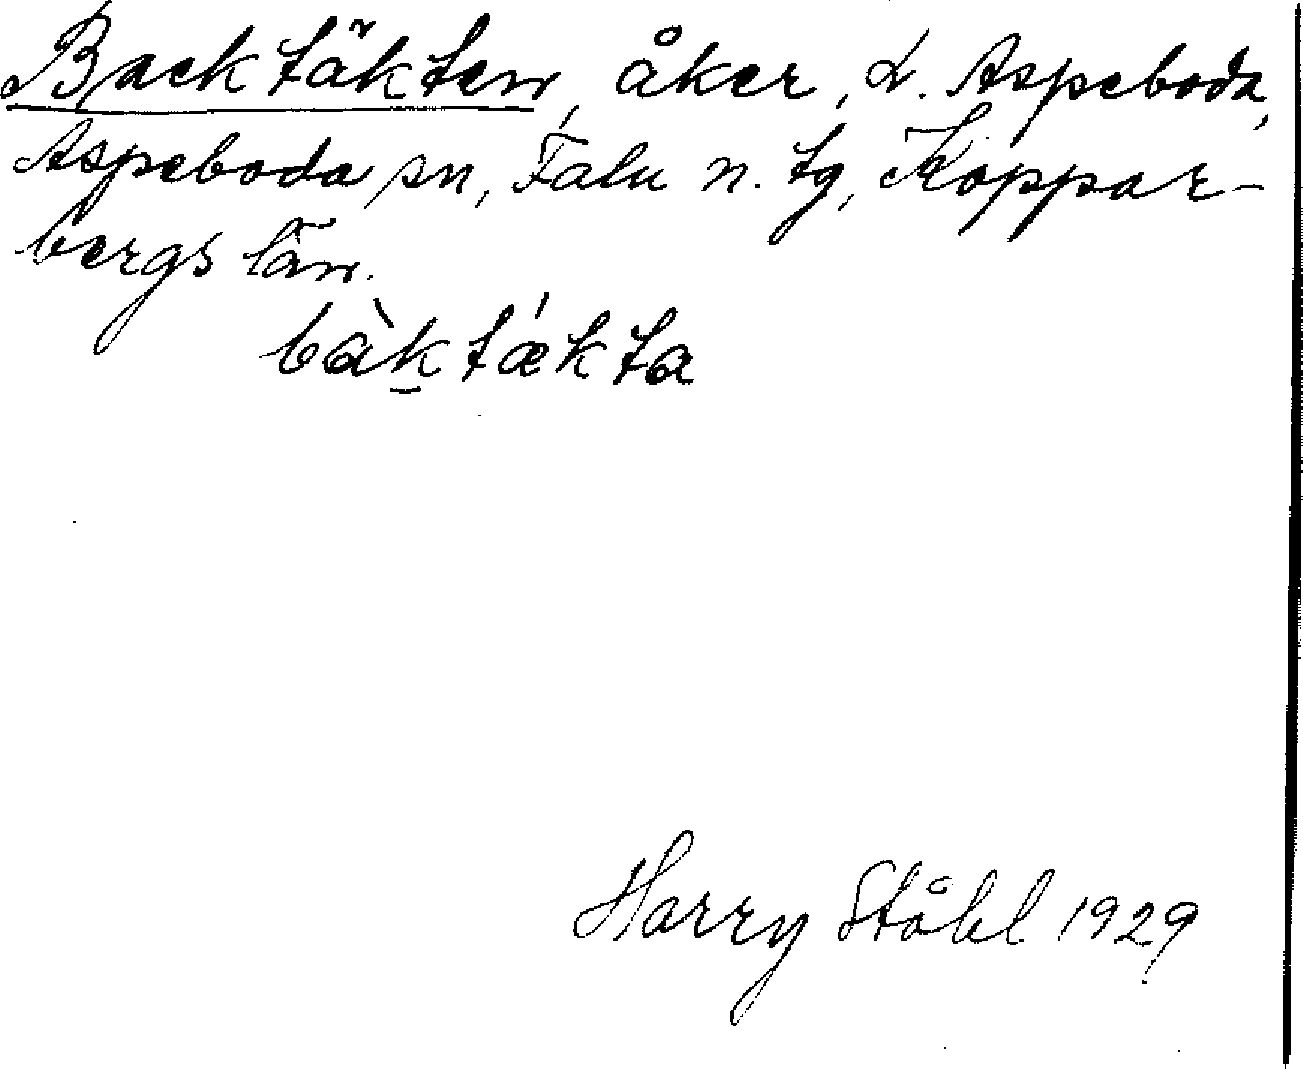 Backtäkten, åker, L. Aspeboda,
Aspeboda sn, Falu n. tg, Koppar-
bergs län.
bàk̠tǽkta
Harry Ståhl 1929